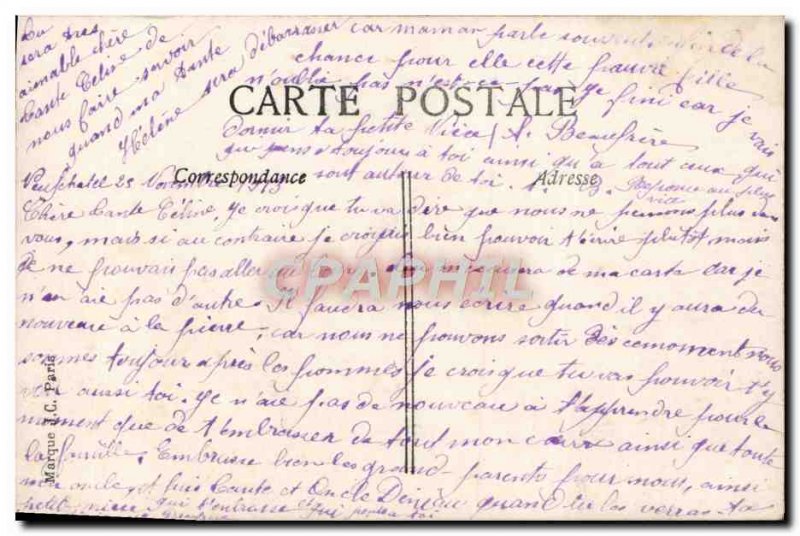 Tu
sera très
aimable chère
tante Céline de
nous faire savoir
quand ma tante
Hélène sera débarrasser car maman parle souvent
chance pour elle cette pauvre fille
n'oublie pas n'est-ce pas je fini car je vais
CARTE POSTALE
dormir ta petite Nièce A. Beaufrère
qui pense toujours à toi ainsi qu'à tout ceux qui
Correspondance
sont autour de toi.
Adresse
Réponse au plus
Neufchatel 25 Novembre 1913
Chère tante Céline, je crois que tu va dire que nous ne pensons plus
vous, mais si au contraire je croyais bien pouvoir t'écrire plutôt mais
je ne pouvais pas aller de ma carte car je
CPAPHIL
n'en aie pas d'autre. Il faudra nous écrire quand il y aura du
nouveau à la pierre, car nous ne pouvons sortir dès ce moment nous
sommes toujours après les pommes je crois que tu vas pouvoir
aussi toi. Je n'aie pas de nouveau à t'apprendre pour le
moment que de t'embrasser de tout mon cœur ainsi que toute
la famille. Embrasse bien les grand-parents pour nous, ainsi
mon oncle, et puis tante et Oncle quand tu les verras ta
petite nièce qui t'embrasse et qui pense à toi
Marque J.C. Paris